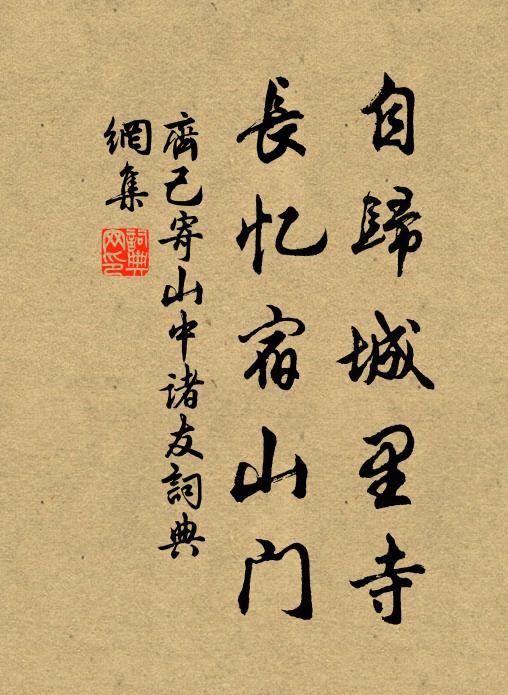 自歸城里寺
長忆宿山门
齊己寄山中诸友詞典
網集
詞典
网印